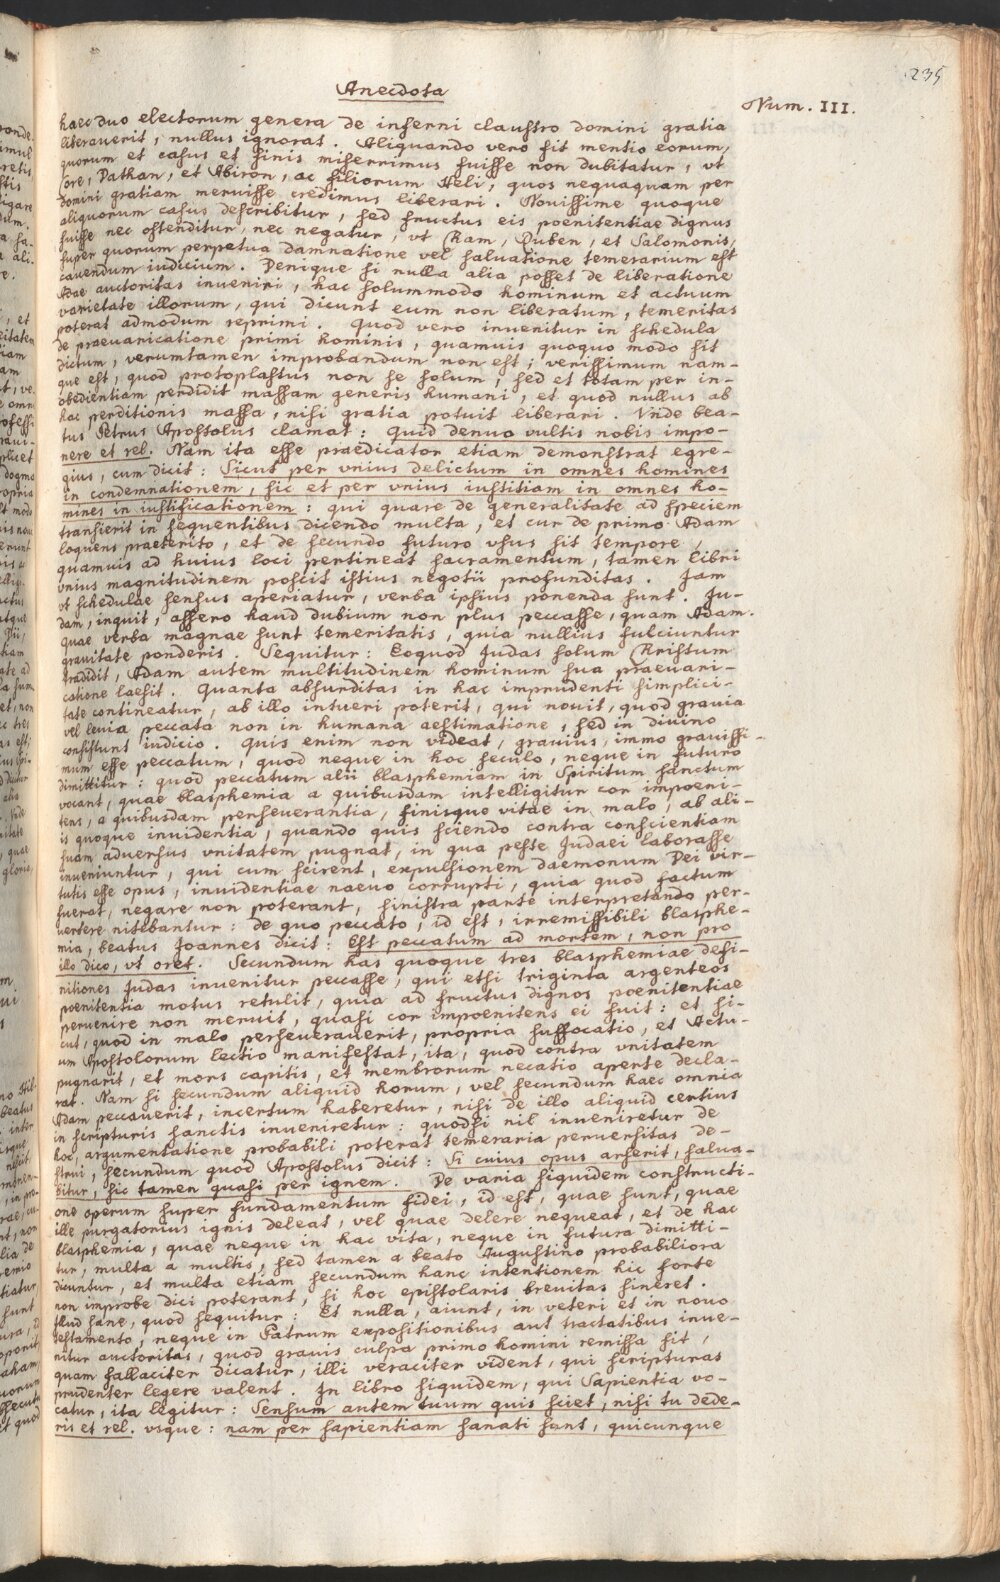 235
Anecdota
Num. III.
haec duo electorum genera de inferni claustro domini gratia
liberauerit, nullus ignorat. Aliquando vero fit mentio eorum,
quorum et casus et finis miserrimus fuisse non dubitatur, vt
Core, Dathan, et Abiron, ac filiorum Heli, quos nequaquam per
Domini gratiam meruisse credimus liberari. Nouissime quoque
aliquorum casus describitur, sed fructus eis poenitentiae dignus
fuisse nec ostenditur, nec negatur, vt Cham, Ruben, et Salomonis,
super quorum perpetua damnatione vel saluatione temerarium est
cauendum iudicium. Denique si nulla alia posset de liberatione
Adae auctoritas inueniri, hac solummodo hominum et actuum
varietate illorum, qui dicunt eum non liberatum, temeritas
poterat admodum reprimi. Quod vero inuenitur in schedula
de praeuaricatione primi hominis, quamuis quoquo modo sit
dictum, verumtamen improbandum non est; verissimum nam-
que est, quod protoplastus non se solum, sed et totam per in-
obedientiam perdidit massam generis humani, et quod nullus ab
hac perditionis massa, nisi gratia potuit liberari. Vnde bea-
tus Petrus Apostolus clamat: Quid denuo vultis nobis impo-
nere et rel. Nam ita esse praedicator etiam demonstrat egre-
gius, cum dicit: Sicut per vnius delictum in omnes homines
in condemnationem, sic et per vnius iustitiam in omnes ho-
mines in iustificationem: qui quare de generalitate ad speciem
transierit in sequentibus dicendo multa, et cur de primo Adam
loquens praeterito, et de secundo futuro vsus sit tempore,
quamuis ad huius loci pertineat sacramentum, tamen libri
vnius magnitudinem poscit istius negotii profunditas. Jam
vt schedulae sensus aperiatur, verba ipsius ponenda sunt. Ju-
dam, inquit, assero haud dubium non plus peccasse, quam Adam.
Quae verba magnae sunt temeritatis, quia nullius fulciuntur
grauitate ponderis. Sequitur: Eoquod Judas solum Christum
tradidit, Adam autem multitudinem hominum sua praeuari-
catione laesit. Quanta absurditas in hac imprudenti simplici-
tate contineatur, ab illo intueri poterit, qui nouit, quod grauia
vel leuia peccata non in humana aestimatione, sed in diuino
consistunt iudicio. Quis enim non videat, grauius, immo grauissi-
mum esse peccatum, quod neque in hoc seculo, neque in futuro
dimittitur: quod peccatum alii blasphemiam in Spiritum sanctum
vocant, quae blasphemia a quibusdam intelligitur cor impoeni-
tens, a quibusdam perseuerantia, finisque vitae in malo, ab ali-
is quoque inuidentia, quando quis sciendo contra conscientiam
suam aduersus vnitatem pugnat, in qua peste Judaei laborasse
inueniuntur, qui cum scirent, expulsionem daemonum Dei vir-
tutis esse opus, inuidentiae naeuo corrupti, quia quod factum
fuerat, negare non poterant, sinistra parte interpretando per-
vertere nitebantur: de quo peccato, id est, irremissibili blasphe-
mia, beatus Joannes dicit: Est peccatum ad mortem, non pro
illo dico, vt oret. Secundum has quoque tres blasphemiae defi-
nitiones Judas inuenitur peccasse, qui etsi triginta argenteos
poenitentia motus retulit, quia ad fructus dignos poenitentiae
peruenire non meruit, quasi cor impoenitens ei fuit: et si-
cut, quod in malo perseuerauerit, propria suffocatio, et Actu-
um Apostolorum lectio manifestat, ita, quod contra vnitatem
pugnarit, et mors capitis, et membrorum necatio aperte decla-
rat. Nam si secundum aliquid horum, vel secundum haec omnia
Adam peccauerit, incertum haberetur, nisi de illo aliquid certius
in scripturis sanctis inueniretur: quodsi nil inueniretur de
hoc, argumentatione probabili poterat temeraria peruersitas de-
strui, secundum quod Apostolus dicit: Si cuius opus arserit, salua-
bitur, sic tamen quasi per ignem. De varia siquidem constructi-
one operum super fundamentum fidei, id est, quae sunt, quae
ille purgatorius ignis deleat, vel quae delere nequeat, et de hac
blasphemia, quae neque in hac vita, neque in futura dimitti-
tur, multa a multis, sed tamen a beato Augustino probabiliora
dicuntur, et multa etiam secundum hanc intentionem hic forte
non improbe dici poterant, si hoc epistolaris breuitas sineret.
Illud sane, quod sequitur: Et nulla, aiunt, in veteri et in nouo
testamento, neque in Patrum expositionibus aut tractatibus inue-
nitur auctoritas, quod grauis culpa primo homini remissa sit,
quam fallaciter dicatur, illi veraciter vident, qui scripturas
prudenter legere valent. In libro siquidem, qui Sapientia vo-
catur, ita legitur: Sensum autem tuum quis sciet, nisi tu dede-
ris et rel. vsque: nam per sapientiam sanati sunt, quicunque